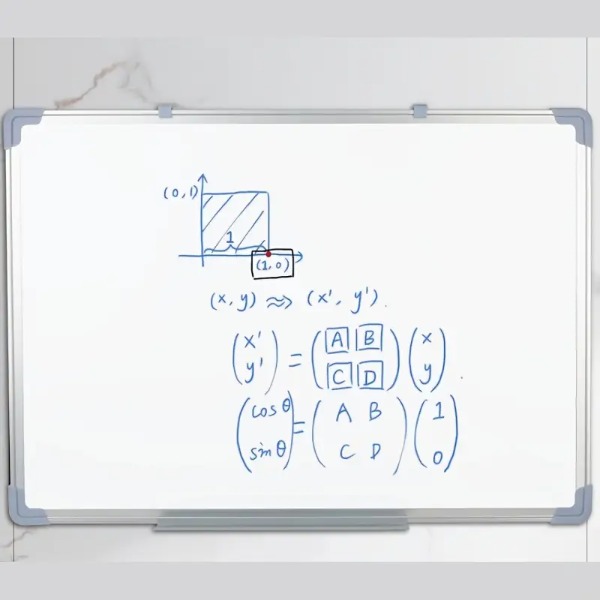 (0,1)
1
(1,0)
(x, y) ⇝ (x', y').
(x' y') = (A B C D) (x y).
(cos θ sin θ) = (A B C D) (1 0)